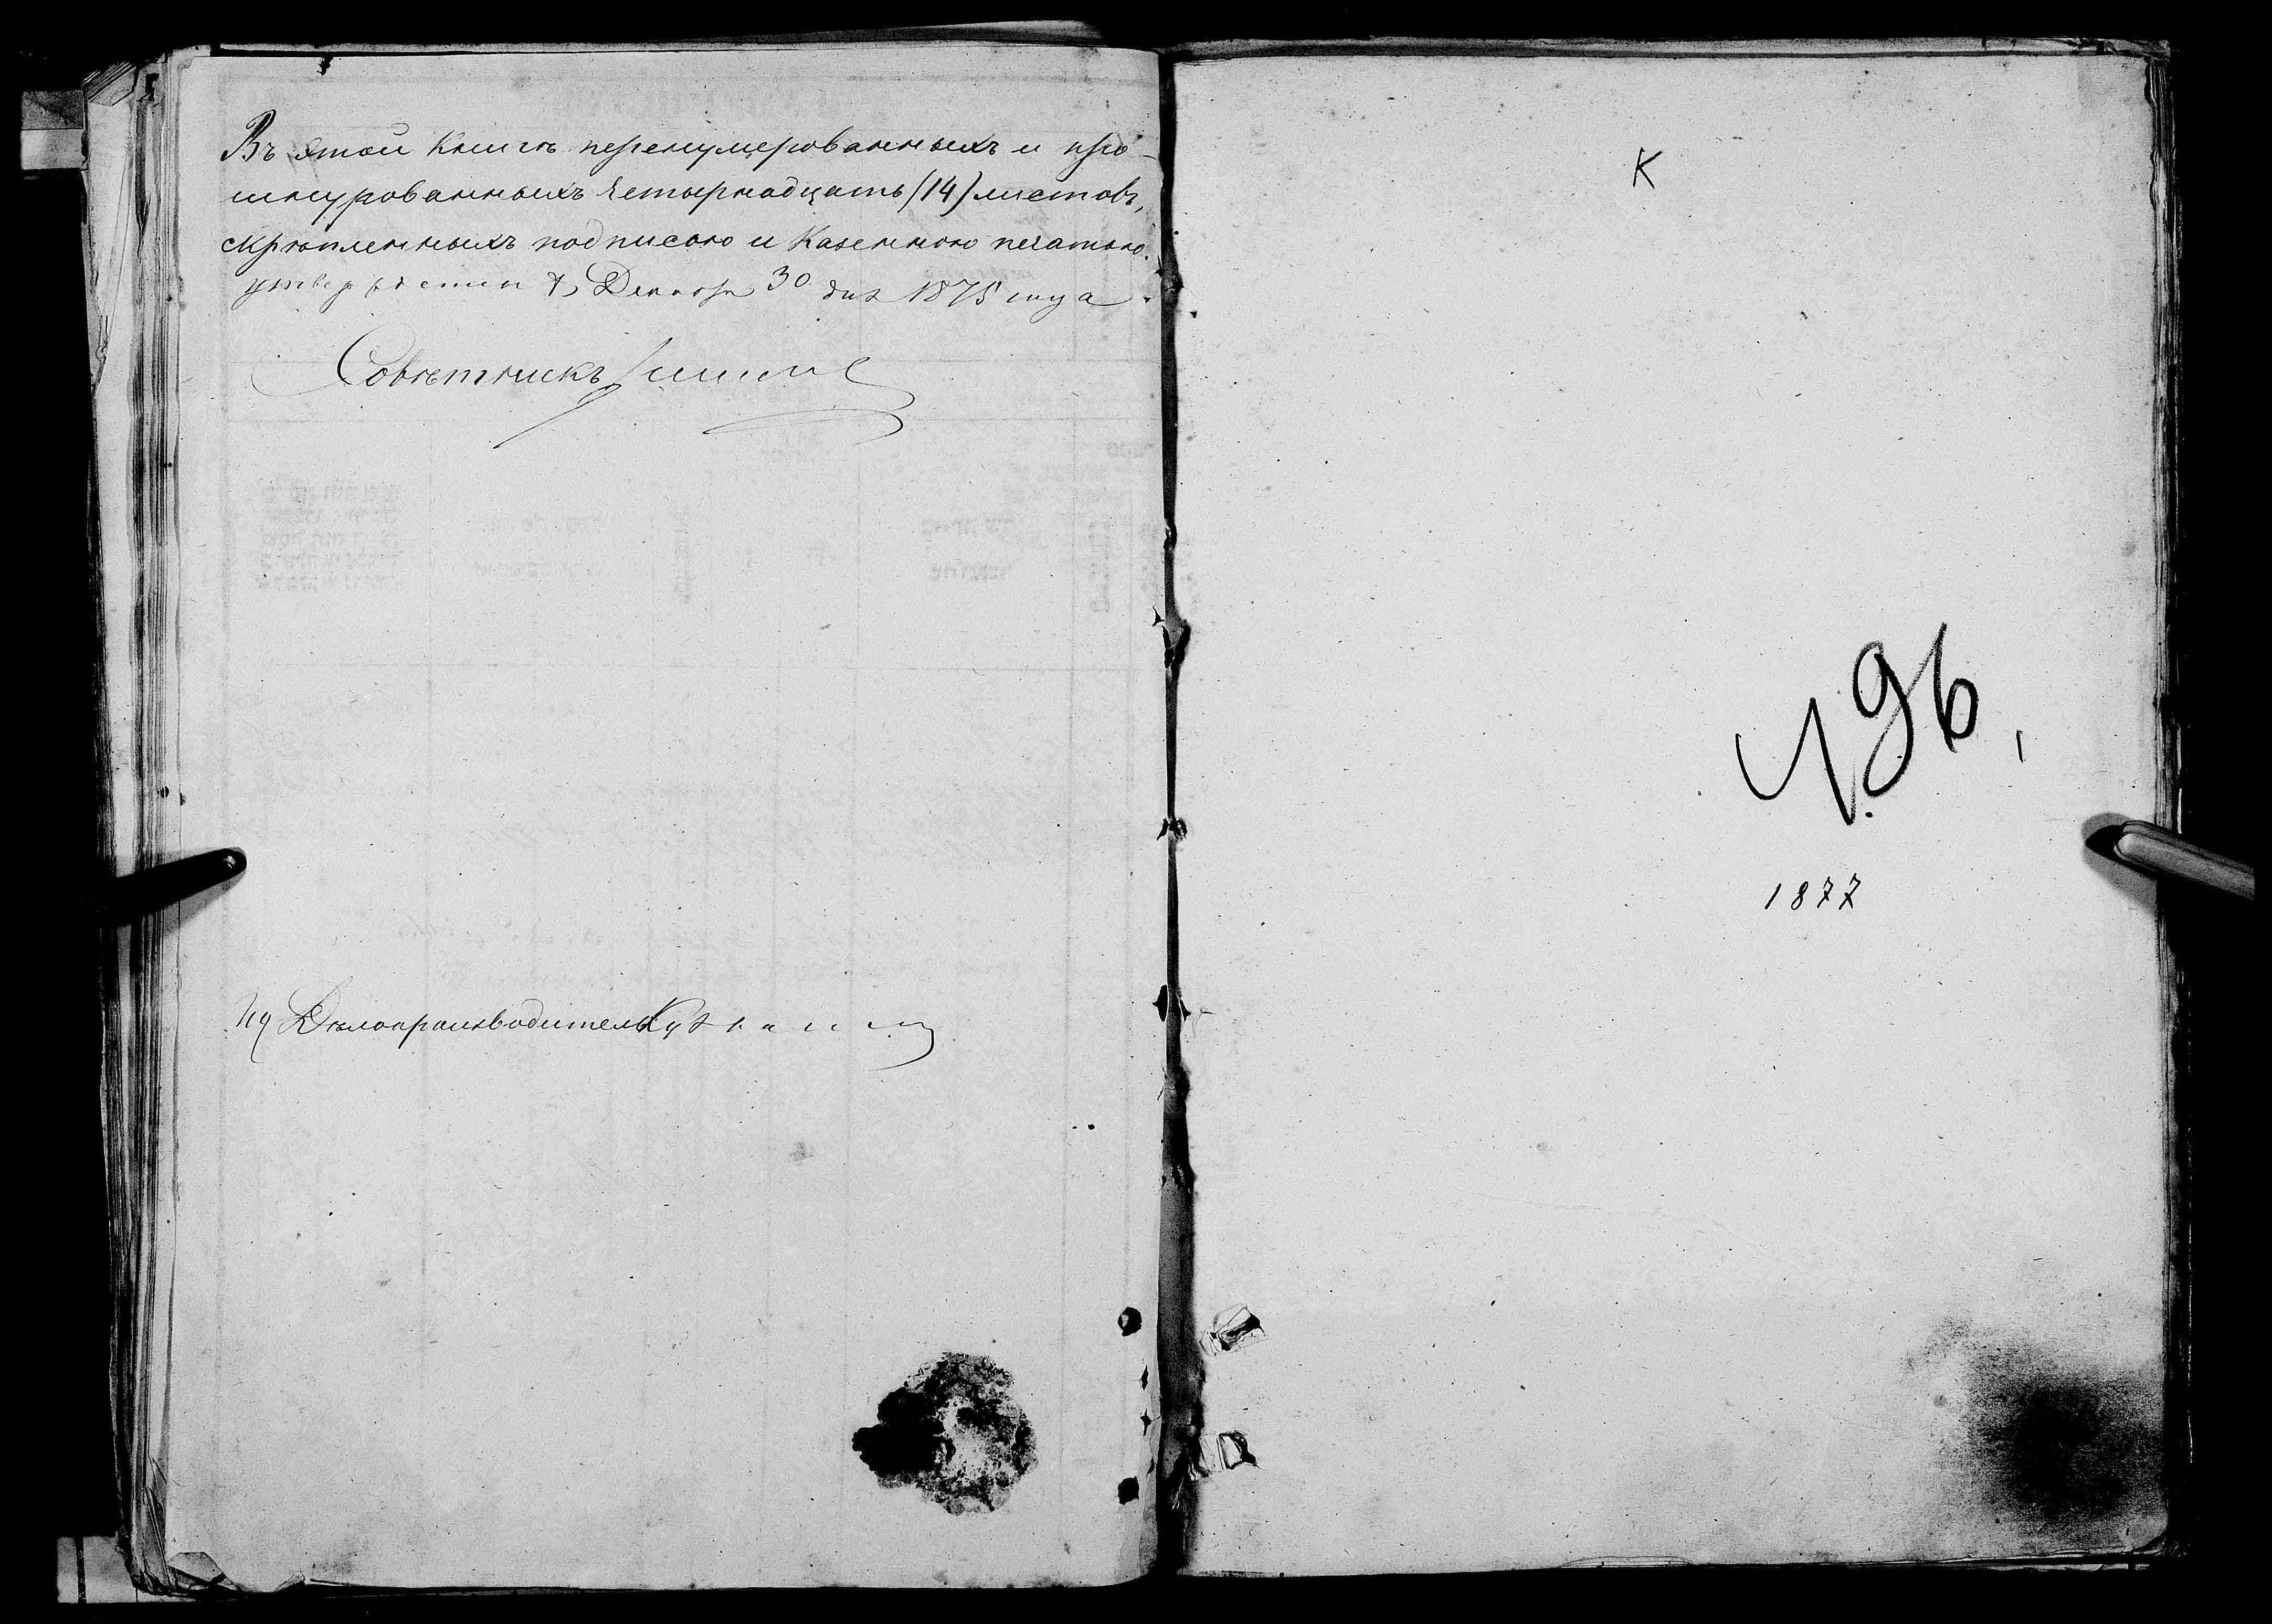 Въ этой Книгѣ перенумерованныхъ и про-
шнурованныхъ Четырнадцать (14) листовъ,
скрѣпленныхъ подписью и Казенною печатью.
Декабря 30 дня 1875 года.
Совѣтникъ
Ид Дѣлопроизводитель
К
496,
1877